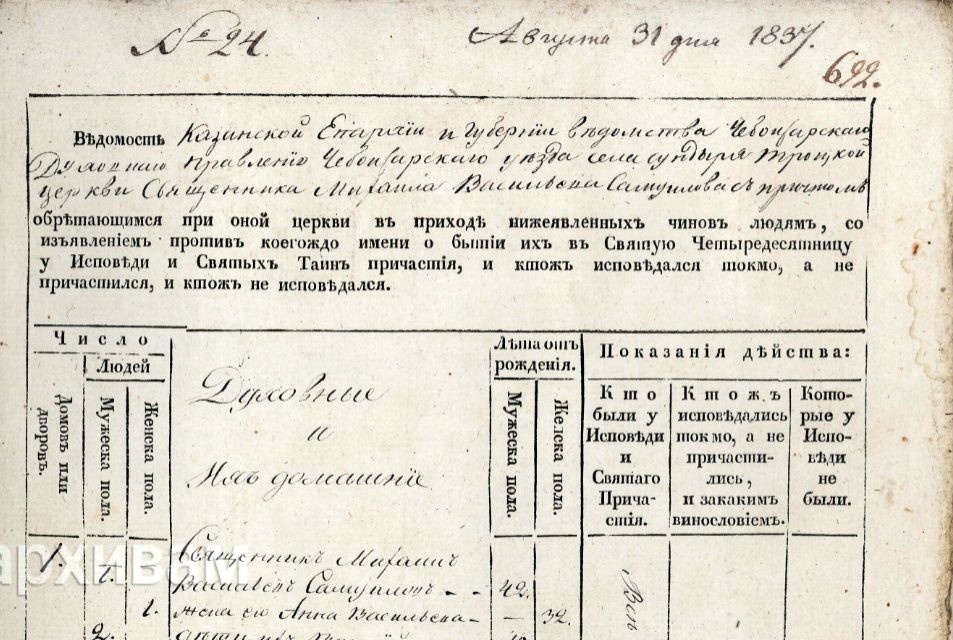 № 24.
Августа 31 дня 1837.
692.
Вѣдомость Казанской Епархіи и Губерніи вѣдомства Чебоксарскаго
Духовнаго правленія Чебоксарскаго уѣзда села Сундыря Троицкой
церкви Священника Михаила Васильева Самуилова съ причтомъ
обрѣтающимся при оной церкви въ приходѣ нижеявленныхъ чиновъ людямъ, со
изъявленіемъ противъ коегождо имени о бытіи ихъ въ Святую Четыредесятницу
у Исповѣди и Святыхъ Таинъ причастія, и ктожъ исповѣдался токмо, а не
причастился, и ктожъ не исповѣдался.
Число
Людей
Домовъ или дворовъ.
Мужеска пола.
Женска пола.
Духовные
и
Ихъ домашніе
Лѣта отъ
рожденія.
Мужеска пола.
Женска пола.
Показанія дѣйства:
Кто
были у
Исповѣди
и
Святаго
Прича-
стія.
Ктожъ
исповѣдались
токмо, а не
причасти-
лись,
и закакимъ
винословіемъ.
Кото-
рые у
Испо-
вѣди
не
были.
1. 1. Священникъ Михаилъ
Васильевъ Самуиловъ - - 42.
1. жена его Анна Васильева - 32.
2. дѣти ихъ
архивам